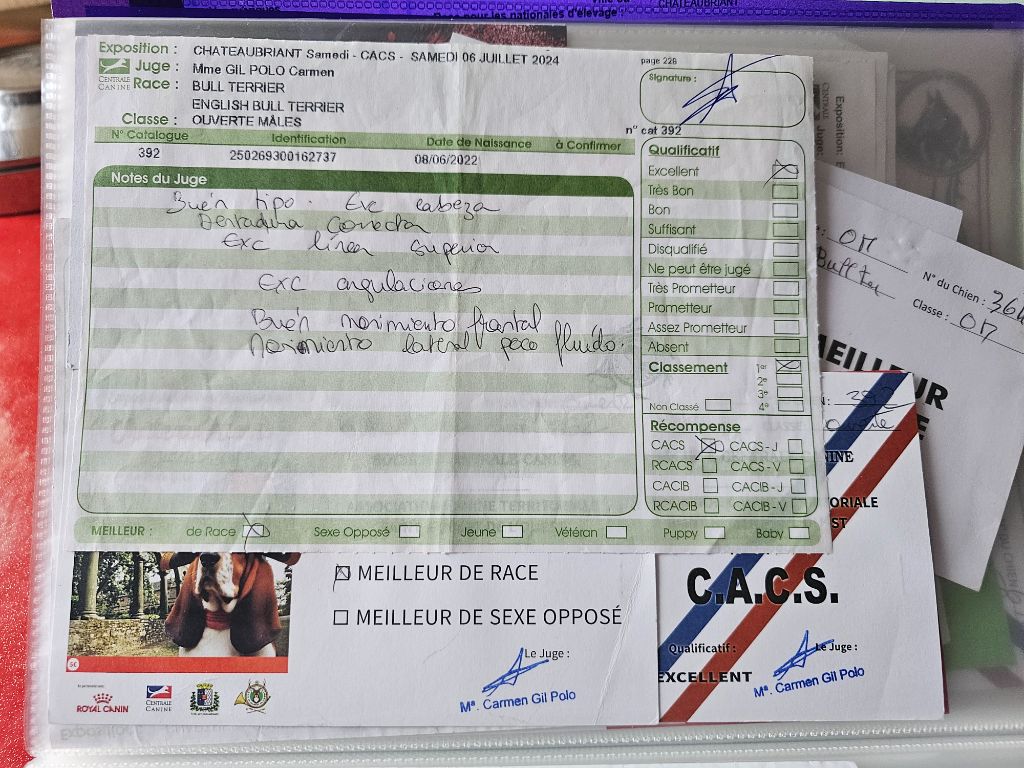 Race pour les nationales d'élevage :
CHATEAUBRIANT
Exposition : CHATEAUBRIANT Samedi - CACS - SAMEDI 06 JUILLET 2024
Juge : Mme GIL POLO Carmen
CENTRALE
CANINE
Race : BULL TERRIER
ENGLISH BULL TERRIER
Classe : OUVERTE MÂLES
page 228
Signature :
n° cat 392
N° Catalogue Identification Date de Naissance à Confirmer
392 250269300162737 08/06/2022
Notes du Juge
Buén tipo. Exc cabeza
Dentadura correcta
Exc línea superior
Exc angulaciones
Buén movimiento frontal
Movimiento lateral poco fluido.
Qualificatif
Excellent
Très Bon
Bon
Suffisant
Disqualifié
Ne peut être jugé
Très Prometteur
Prometteur
Assez Prometteur
Absent
Classement 1er
2e
3e
Non Classé 4e
Récompense
CACS CACS - J
RCACS CACS - V
CACIB CACIB - J
RCACIB CACIB - V
MEILLEUR : de Race Sexe Opposé Jeune Vétéran Puppy Baby
MEILLEUR DE RACE
MEILLEUR DE SEXE OPPOSÉ
Le Juge :
Mª. Carmen Gil Polo
5€
ROYAL CANIN
CENTRALE
CANINE
392
Ouverte
C.A.C.S.
Qualificatif :
EXCELLENT
Le Juge :
Mª. Carmen Gil Polo
OM
Bull Ter
N° du Chien : 364
Classe : OM
MEILLEUR
Exposition
Juge